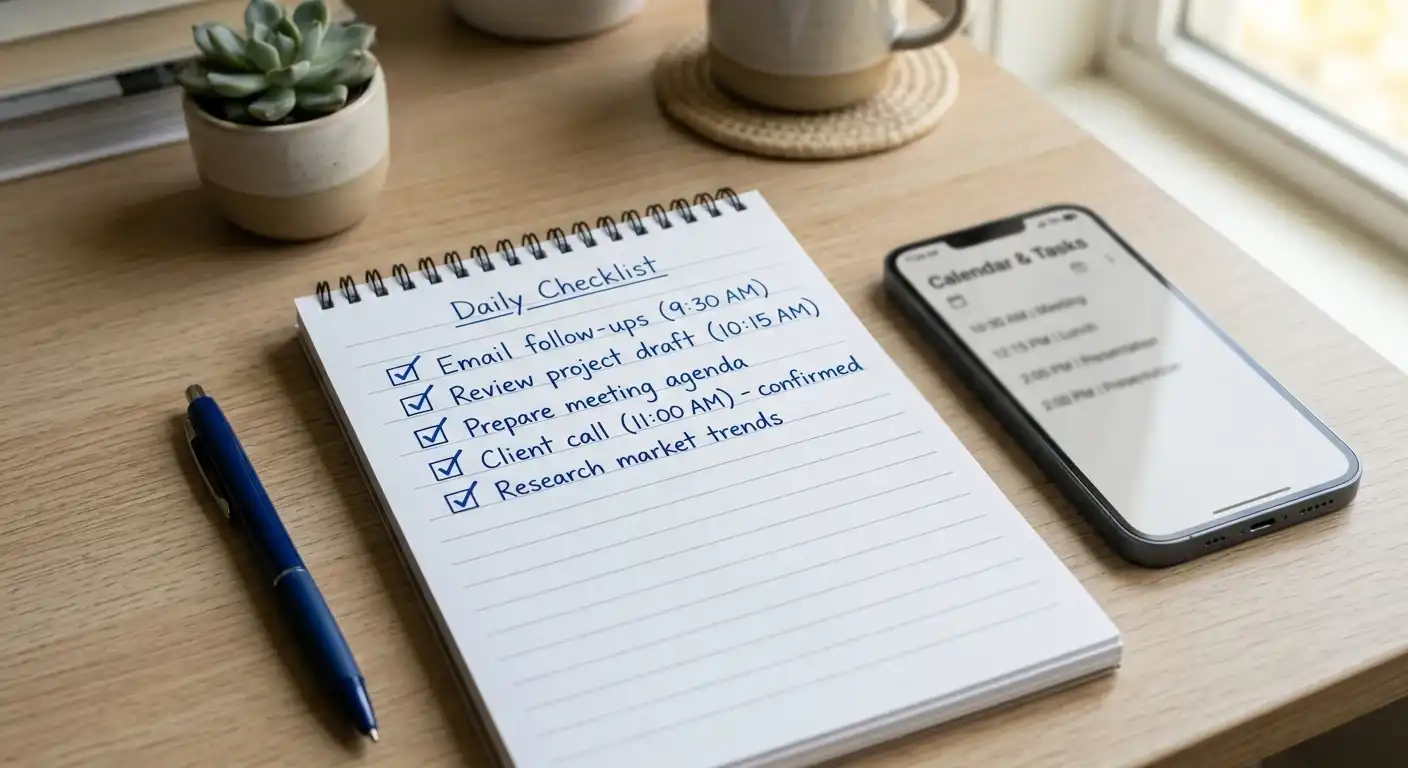 Daily Checklist
☑ Email follow-ups (9:30 AM)
☑ Review project draft (10:15 AM)
☑ Prepare meeting agenda
☑ Client call (11:00 AM) – confirmed
☑ Research market trends
Calendar & Tasks
10:30 AM | Meeting
12:15 PM | Lunch
2:00 PM | Presentation
2:00 PM | Presentation